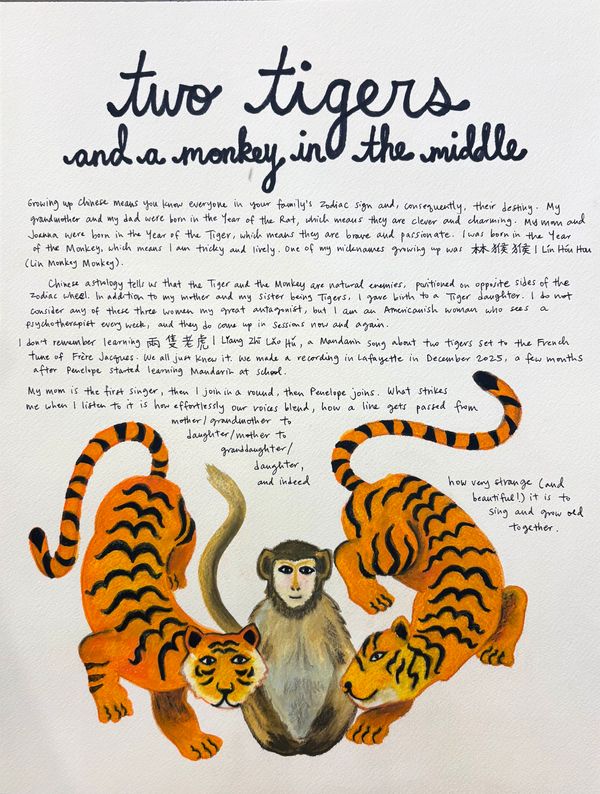 two tigers
and a monkey in the middle
Growing up Chinese means you know everyone in your family's zodiac sign and, consequently, their destiny. My
grandmother and my dad were born in the Year of the Rat, which means they are clever and charming. My mom and
Joanna were born in the Year of the Tiger, which means they are brave and passionate. I was born in the Year
of the Monkey, which means I am tricky and lively. One of my nicknames growing up was 林猴猴 | Lín Hóu Hou
(Lin Monkey Monkey).
Chinese astrology tells us that the Tiger and the Monkey are natural enemies, positioned on opposite sides of the
Zodiac wheel. In addition to my mother and my sister being Tigers, I gave birth to a Tiger daughter. I do not
consider any of these three women my great antagonist, but I am an Americanish woman who sees a
psychotherapist every week, and they do come up in sessions now and again.
I don't remember learning 兩隻老虎 | Liǎng Zhī Lǎo Hǔ, a Mandarin song about two tigers set to the French
tune of Frère Jacques. We all just knew it. We made a recording in Lafayette in December 2025, a few months
after Penelope started learning Mandarin at school.
My mom is the first singer, then I join in a round, then Penelope joins. What strikes
me when I listen to it is how effortlessly our voices blend, how a line gets passed from
mother/grandmother to
daughter/mother to
granddaughter/
daughter,
and indeed
how very strange (and
beautiful!) it is to
sing and grow old
together.